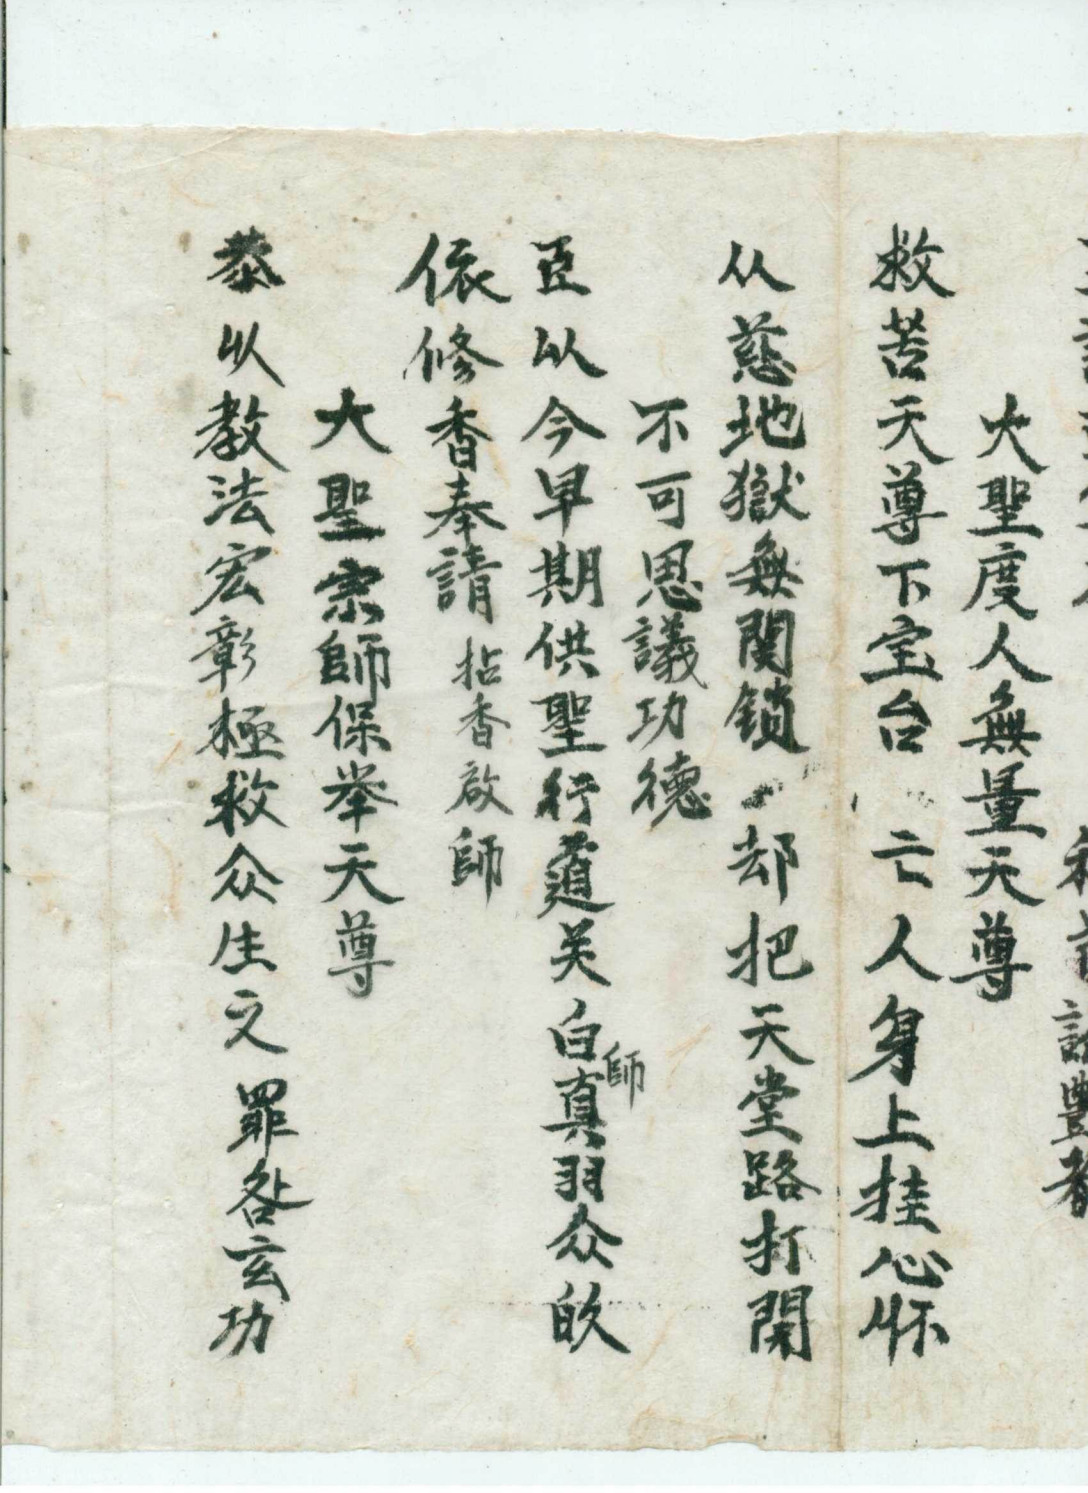 大聖度人無量天尊
救苦天尊下宝台 亡人身上挂心怀
从慈地獄無関鎖 却把天堂路打開
不可思議功德
臣以今早期供聖行道关白真師羽众皈
依修香奉請 拈香啟師
大聖宗師保举天尊
恭以教法宏彰極救众生之罪咎玄功